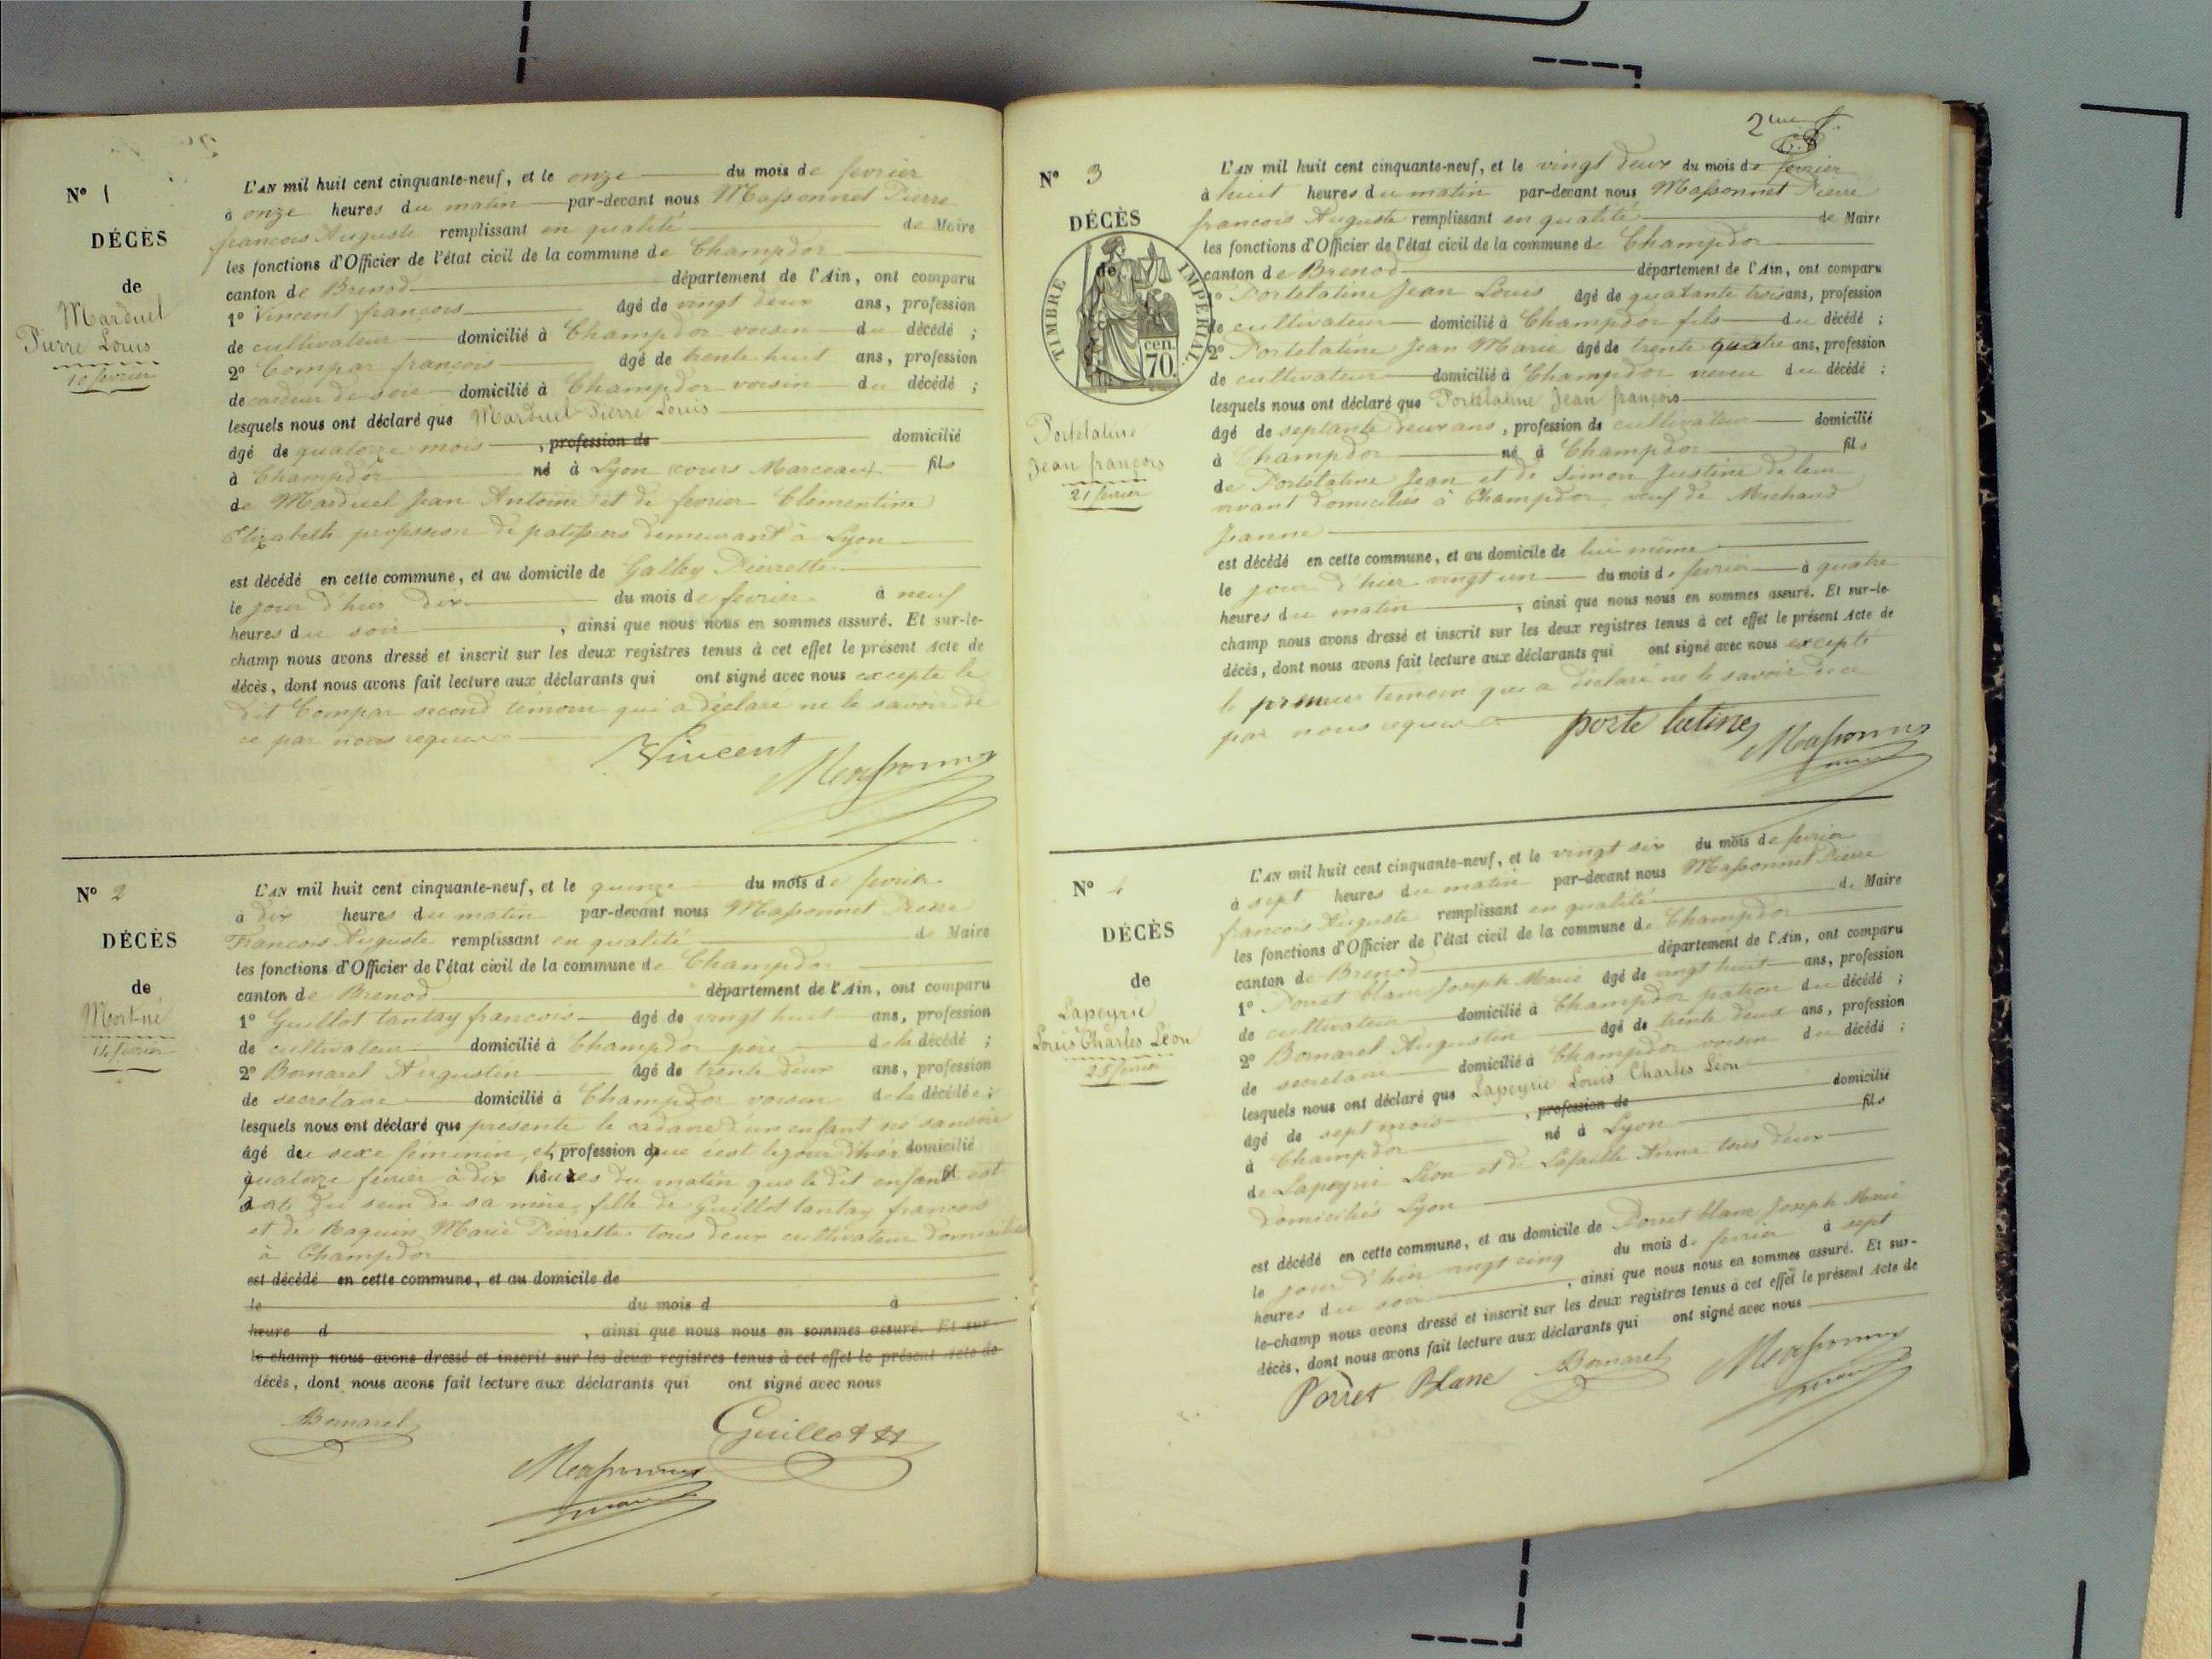 N° 1
DÉCÈS
de
Marduel
Pierre Louis
10 fevrier
L'AN mil huit cent cinquante-neuf, et le onze du mois de fevrier
à onze heures du matin par-devant nous Massonnet Pierre
francois Auguste remplissant en qualité de Maire
les fonctions d'Officier de l'état civil de la commune de Champdor
canton de Brenod département de l'Ain, ont comparu
1° Vincent françois âgé de vingt deux ans, profession
de cultivateur domicilié à Champdor voisin du décédé ;
2° Compar françois âgé de trente huit ans, profession
de cardeur de soie domicilié à Champdor voisin du décédé ;
lesquels nous ont déclaré que Marduel Pierre Louis
âgé de quatorze mois , profession de domicilié
à Champdor né à Lyon (cours Marceau) fils
de Marduel Jean Antoine et de fevrier Clementine
Elizabeth profession de patissiers demeurant à Lyon
est décédé en cette commune, et au domicile de Galley Pierrette
le jour d'hier dix du mois de fevrier à neuf
heures du soir , ainsi que nous nous en sommes assuré. Et sur-le-
champ nous avons dressé et inscrit sur les deux registres tenus à cet effet le présent Acte de
décès, dont nous avons fait lecture aux déclarants qui ont signé avec nous excepté le
dit Compar second témoin qui a déclaré ne le savoir de
ce par nous requis
Vincent
N° 2
DÉCÈS
de
Mort-né
14 fevrier
L'AN mil huit cent cinquante-neuf, et le quinze du mois de fevrier
à dix heures du matin par-devant nous Massonnet Pierre
Francois Auguste remplissant en qualité de Maire
les fonctions d'Officier de l'état civil de la commune de Champdor
canton de Brenod département de l'Ain, ont comparu
1° Guillot tantay francois âgé de vingt huit ans, profession
de cultivateur domicilié à Champdor père de la décédé ;
2° Bornarel Augustin âgé de trente deux ans, profession
de secretaire domicilié à Champdor voisin de la décédée ;
lesquels nous ont déclaré que presenté le cadavre d'un enfant né sans vie
âgé du sexe féminin, et profession que c'est le jour d'hier domicilié
quatorze fevrier à dix heures du matin que le dit enfant est
du sein de sa mère, fille de Guillot tantay francois
et de Raquin Marie Pierrette tous deux cultivateur domiciliés
à Champdor
est décédé en cette commune, et au domicile de
le du mois d à
heure d , ainsi que nous nous en sommes assuré. Et sur-
le-champ nous avons dressé et inscrit sur les deux registres tenus à cet effet le présent Acte de
décès, dont nous avons fait lecture aux déclarants qui ont signé avec nous
Bornarel
Guillot
2me f.
N° 3
DÉCÈS
de
TIMBRE IMPERIAL
70 cen
Portelatine
Jean françois
21 fevrier
L'AN mil huit cent cinquante-neuf, et le vingt deux du mois de fevrier
à huit heures du matin par-devant nous Massonnet Pierre
francois Auguste remplissant en qualité de Maire
les fonctions d'Officier de l'état civil de la commune de Champdor
canton de Brenod département de l'Ain, ont comparu
1° Portelatine Jean Louis âgé de quarante trois ans, profession
de cultivateur domicilié à Champdor fils du décédé ;
2° Portelatine Jean Marie âgé de trente quatre ans, profession
de cultivateur domicilié à Champdor neveu du décédé ;
lesquels nous ont déclaré que Portelatine Jean françois
âgé de septante deux ans, profession de cultivateur domicilié
à Champdor né à Champdor fils
de Portelatine Jean et de Simon Justine de leur
vivant domiciliés à Champdor, veuf de Michaud
Jeanne
est décédé en cette commune, et au domicile de lui même
le jour d'hier vingt un du mois de fevrier à quatre
heures du matin , ainsi que nous nous en sommes assuré. Et sur-le-
champ nous avons dressé et inscrit sur les deux registres tenus à cet effet le présent Acte de
décès, dont nous avons fait lecture aux déclarants qui ont signé avec nous excepté
le premier temoin qui a déclaré ne le savoir de ce
par nous requis
porte latine
N° 4
DÉCÈS
de
Lapeyrie
Louis Charles Léon
25 fevrier
L'AN mil huit cent cinquante-neuf, et le vingt six du mois de fevrier
à sept heures du matin par-devant nous Massonnet Pierre
francois Auguste remplissant en qualité de Maire
les fonctions d'Officier de l'état civil de la commune de Champdor
canton de Brenod département de l'Ain, ont comparu
1° Porret blanc Joseph Marie âgé de vingt huit ans, profession
de cultivateur domicilié à Champdor patron du décédé ;
2° Bornarel Augustin âgé de trente deux ans, profession
de secretaire domicilié à Champdor voisin du décédé ;
lesquels nous ont déclaré que Lapeyrie Louis Charles Léon
âgé de sept mois , profession de domicilié
à Champdor né à Lyon fils
de Lapeyrie Léon et de Lafaille Anna tous deux
domiciliés Lyon
est décédé en cette commune, et au domicile de Porret blanc Joseph Marie
le jour d'hier vingt cinq du mois de fevrier à sept
heures du soir , ainsi que nous nous en sommes assuré. Et sur-
le-champ nous avons dressé et inscrit sur les deux registres tenus à cet effet le présent Acte de
décès, dont nous avons fait lecture aux déclarants qui ont signé avec nous
Porret Blanc Bornarel